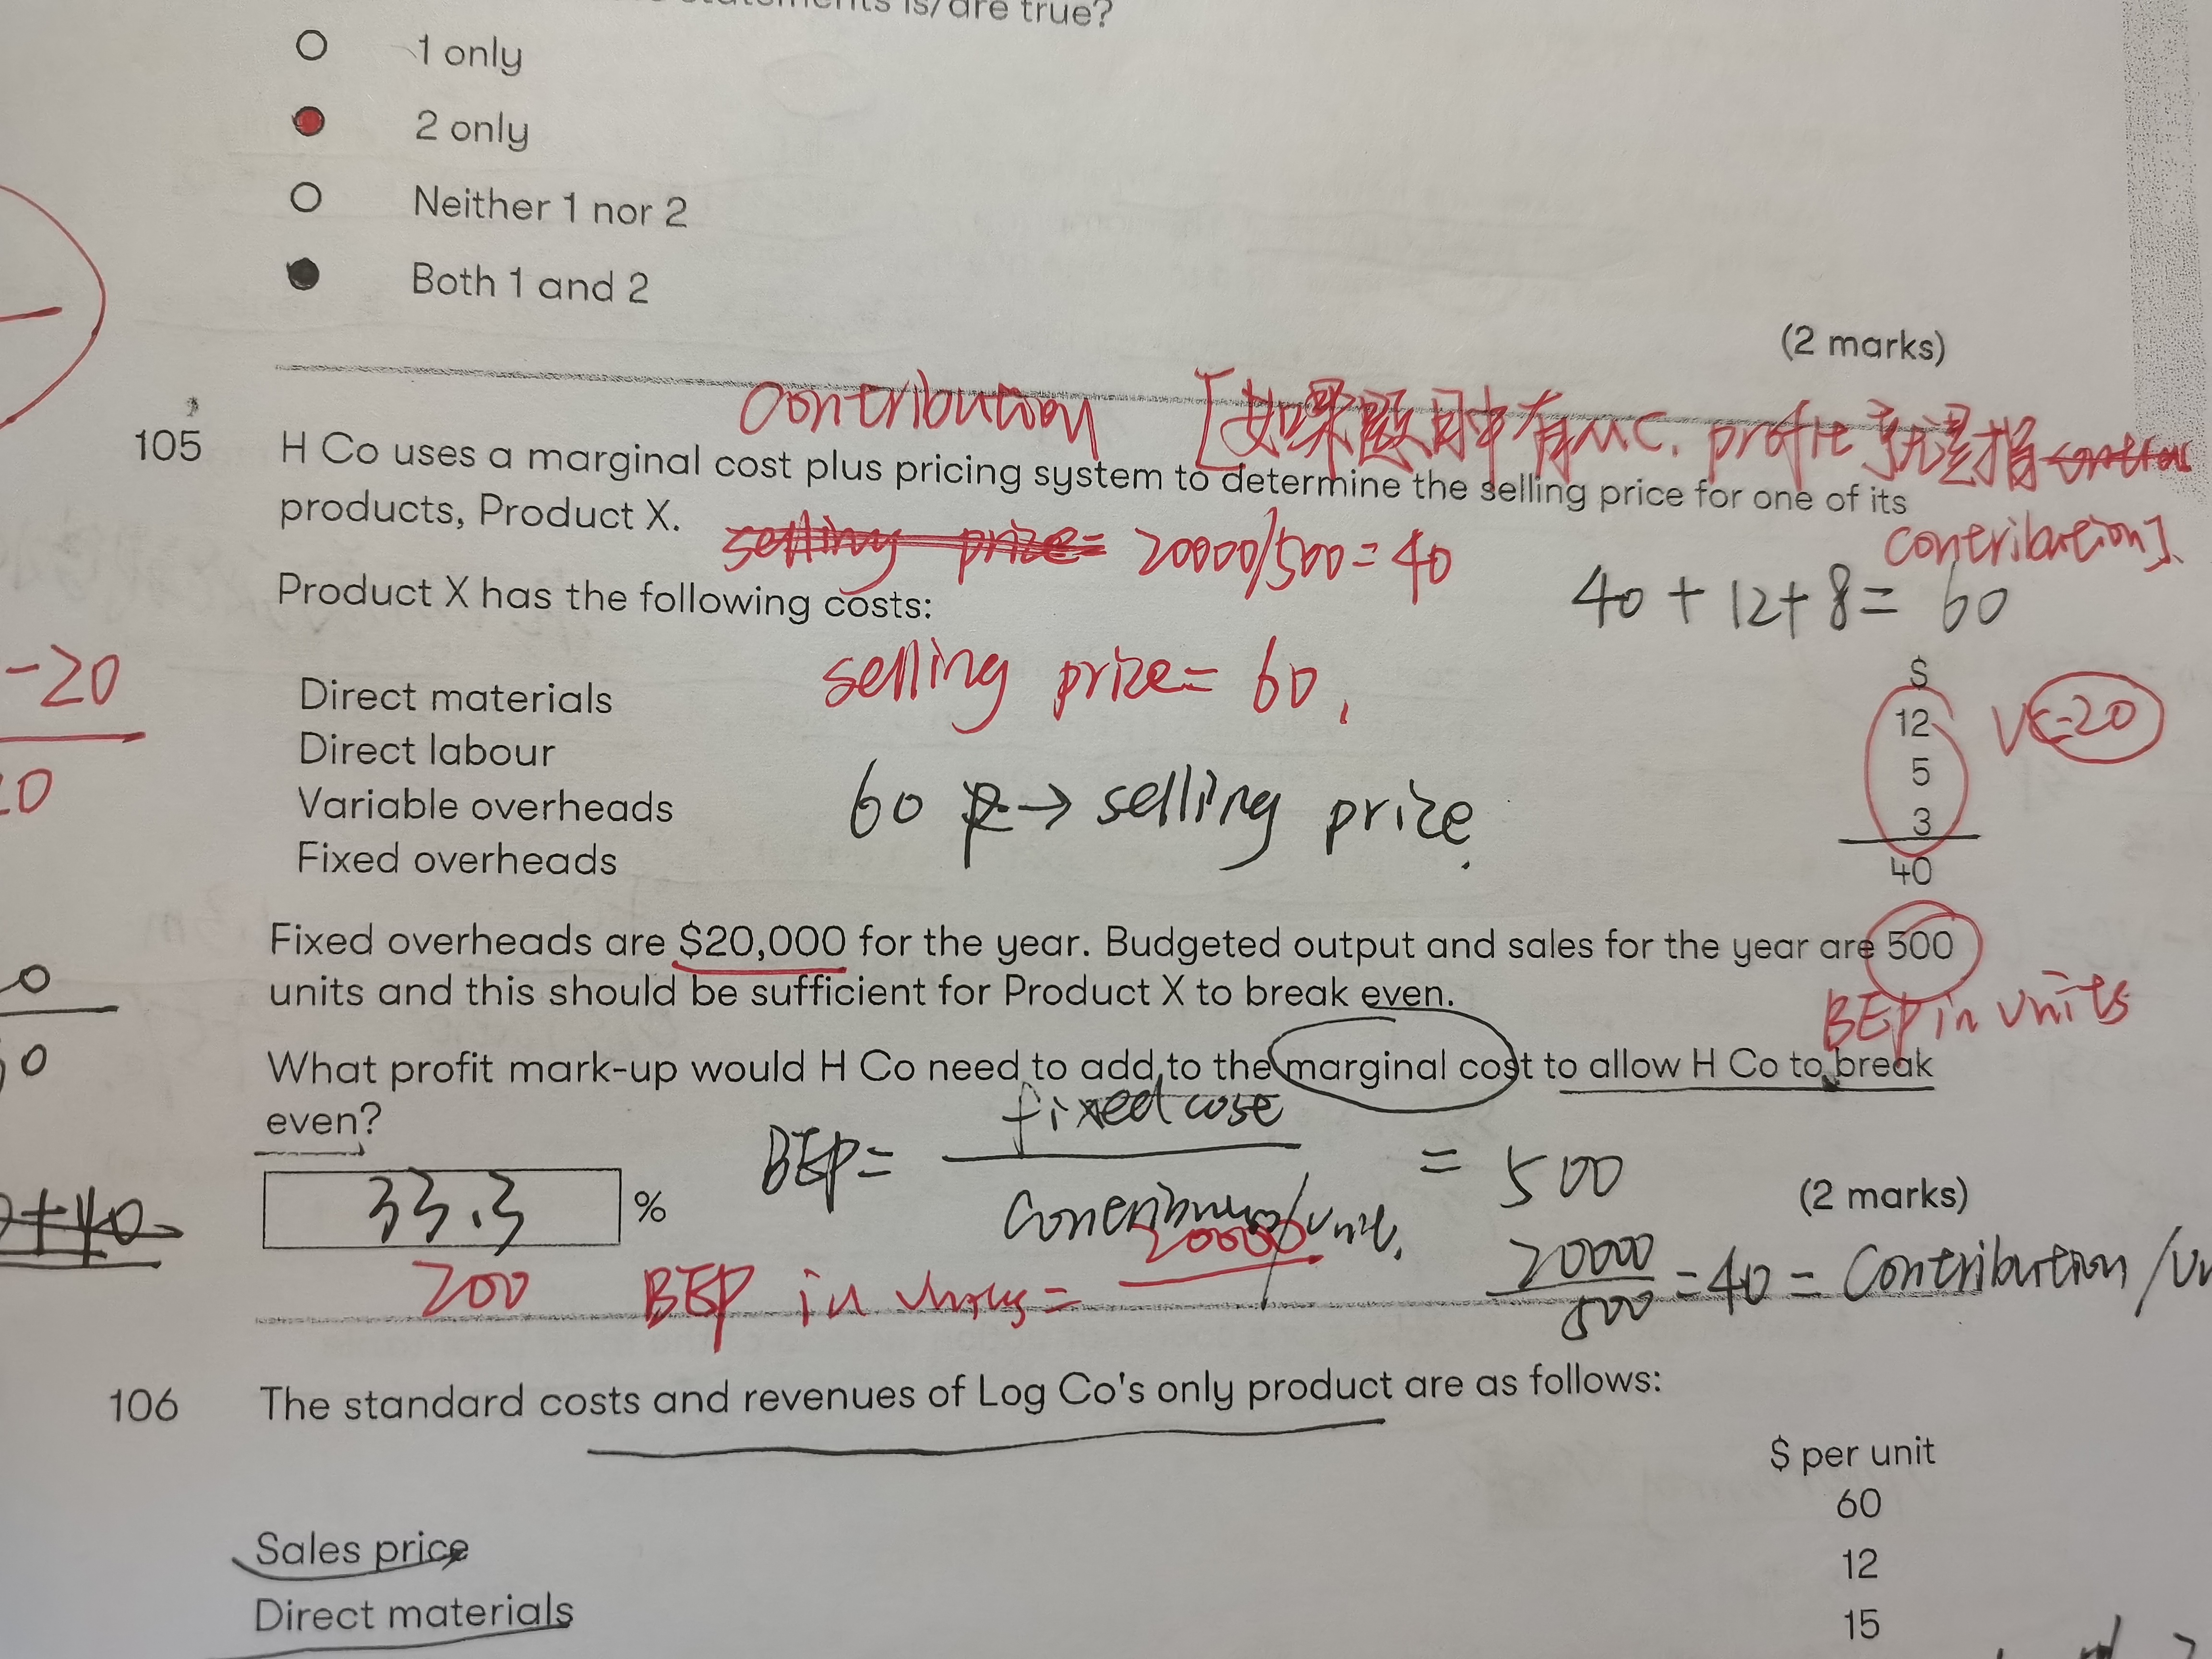 statements is/are true?
1 only
2 only
Neither 1 nor 2
Both 1 and 2
(2 marks)
Contribution [如果题目中有MC. profit 就是指
contribution].
105 H Co uses a marginal cost plus pricing system to determine the selling price for one of its
products, Product X.
20000/500=40
40+12+8= 60
Product X has the following costs:
selling prize= 60.
$
Direct materials 12
VC=20
Direct labour 5
Variable overheads 3
Fixed overheads 40
60 → selling prize.
-20
Fixed overheads are $20,000 for the year. Budgeted output and sales for the year are 500
units and this should be sufficient for Product X to break even.
BEP in units
What profit mark-up would H Co need to add to the marginal cost to allow H Co to break
even?
BEP= fixed cost = 500
33.3 %
(2 marks)
200 BEP in units= 20000
20000/500 =40= Contribution /
106 The standard costs and revenues of Log Co's only product are as follows:
$ per unit
60
Sales price 12
Direct materials 15